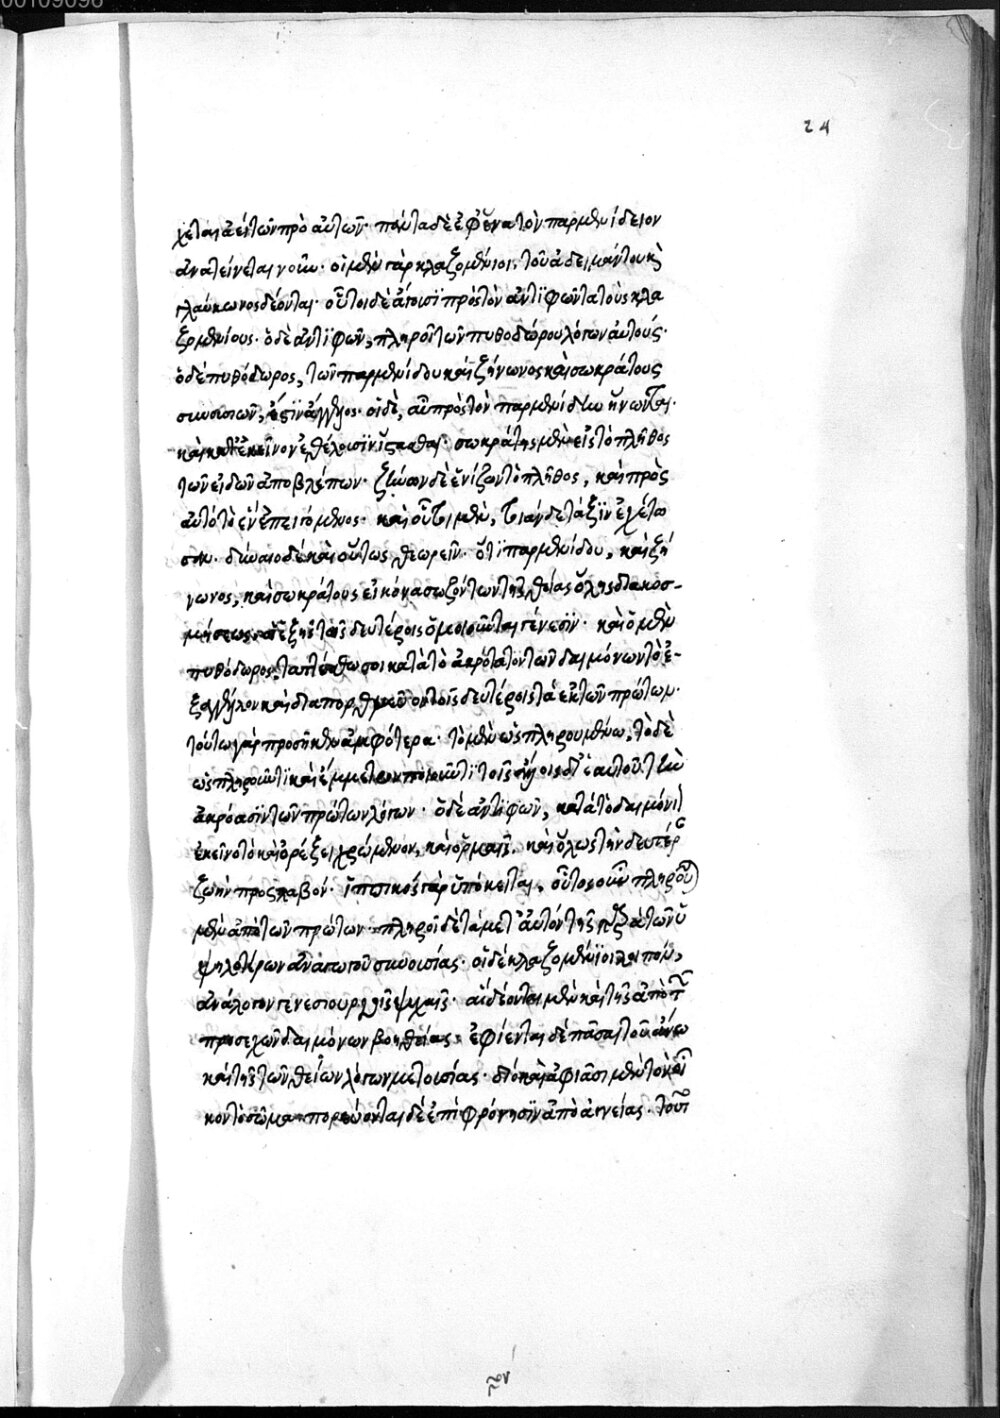 00109096
24
χεται ἀεὶ τῶν πρὸ αὐτῶν· πάντα δὲ ἐφ' ἕνα τὸν παρμενίδειον
ἀνατείνεται νοῦν· οἱ μὲν γὰρ κλαζομένιοι, τοῦ ἀδειμάντου κὶ
γλαύκωνος δέονται· οὗτοι δὲ ἄγουσι πρὸς τὸν ἀντιφῶντα τοὺς κλα
ζομενίους· ὁ δὲ ἀντιφῶν, πληροῖ τῶν πυθοδώρου λόγων αὐτούς·
ὁ δὲ πυθόδωρος, τῶν παρμενίδου καὶ ζήνωνος καὶ σωκράτους
συνουσιῶν, ἐστὶν ἄγγελος· οἱ δὲ, αὖ πρὸς τὸν παρμενίδην ἥνωνται·
καὶ κατ' ἐκεῖνον ἐθέλουσιν ἵστασθαι· σωκράτης μὲν εἰς τὸ πλῆθος
τῶν εἰδῶν ἀποβλέπων· ζήνων δὲ ἑνίζων τὸ πλῆθος, καὶ πρὸς
αὐτὸ τὸ ἓν ἐπειγόμενος· καὶ οὗτοι μὲν, τοιάνδε τάξιν ἐχέτω
σαν· δίκαιο δὲ καὶ οὕτως θεωρεῖν· ὅτι παρμενίδου, καὶ ζή
νωνος, καὶ σωκράτους εἰκόνα σωζόντων τῆς θείας ὅλης διακοσ-
μήσεως αἱ ἑξῆς τάξεις δευτέροις ὁμοιοῦνται γένεσιν· καὶ ὁ μὲν
πυθόδωρος, τετάχθω σοι κατὰ τὸ ἀκρότατον τῶν δαιμόνων τὸ ἐ-
ξαγγέλλον καὶ διαπορθμεῦον τοῖς δευτέροις τὰ ἐκ τῶν πρώτων·
τούτῳ γὰρ προσῆκεν ἀμφότερα· τὸ μὲν ὡς πληρουμένῳ, τὸ δὲ
ὡς πληροῦντι καὶ ἔμμετρον ποιοῦντι τοῖς ἄλλοις δι' ἑαυτοῦ τὴν
ἀκρόασιν τῶν πρώτων λόγων· ὁ δὲ ἀντιφῶν, κατὰ τὸ δαιμόνι
ἐκεῖνο τὸ καὶ ὀρέξει χρώμενον, καὶ ὁρμαῖς, καὶ ὅλως τὴν δευτέρ
ζωὴν προσλαβόν· ἱππικὸς γὰρ ὑπόκειται, οὗτος οὖν πληροῦ
μὲν ἀπὸ τῶν πρώτων· πληροῖ δὲ τὰ μετ' αὐτὸν τῆς πρὸς τῶν ὑ
ψηλοτέρων ἀνάγου συνουσίας· οἱ δὲ κλαζομένιοι λοιπόν,
ἀνάλογον γενεσιουργοῖς ψυχαῖς· αἳ δέονται μὲν καὶ τῆς ἀπὸ τῶν
προσεχῶν δαιμόνων βοηθείας· ἐφίενται δὲ πᾶσαι τοῦ ἄνω
καὶ τῆς τῶν θείων λόγων μετουσίας· διὸ καὶ ἀφιᾶσι μὲν τὸν οἶ
κον τὸ σῶμα· πορεύονται δὲ ἐπὶ φρόνησιν ἀπὸ ἀγνείας· τοῦτ